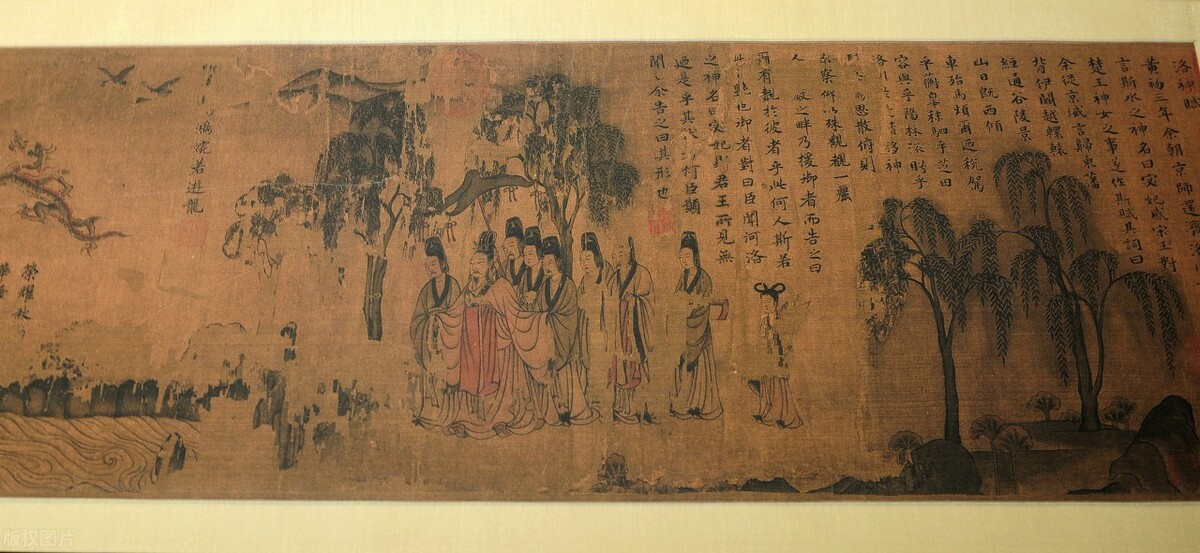 洛神賦
黄初三年余朝京師還濟洛
言斯水之神名曰宓妃感宋玉對
楚王神女之事遂作斯賦其詞曰
余從京域言歸東藩
背伊闕越轘轅
經通谷陵景
山日既西傾
車殆馬煩爾迺稅駕
乎蘅皋秣駟乎芝田
容與乎陽林流眄乎
洛川於是精移神
思散俯則
未察仰以殊觀覩一麗
人 之畔乃援御者而告之曰
爾有覿於彼者乎此何人斯若
此 豔也御者對曰臣聞河洛
之神名曰宓妃則君王所見無
迺是乎其 何臣願
聞之余告之曰其形也
鴻婉若遊龍
榮耀秋
華
版权图片